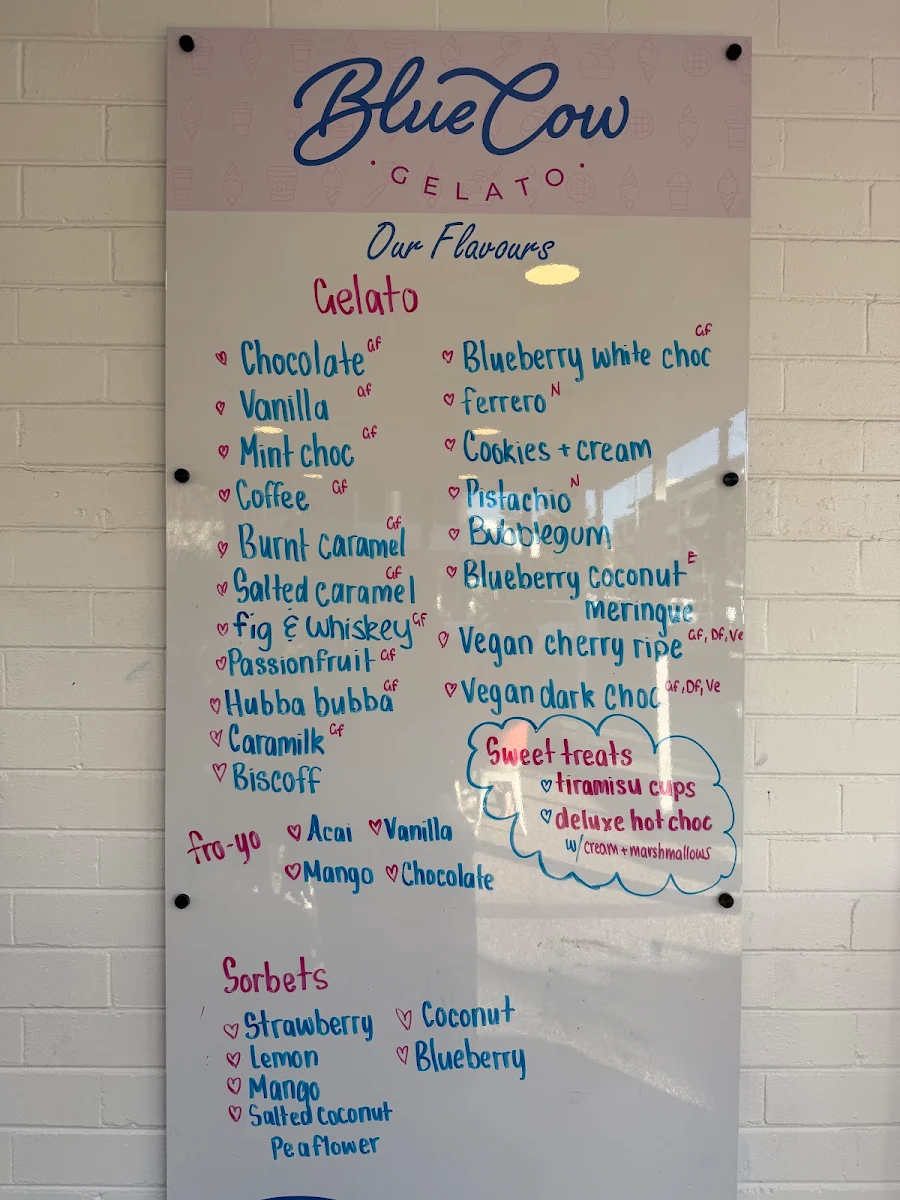 Blue Cow
GELATO
Our Flavours
Gelato
Chocolate GF
Vanilla GF
Mint choc GF
Coffee GF
Burnt caramel GF
Salted caramel GF
fig & whiskey GF
Passionfruit GF
Hubba bubba GF
Caramilk GF
Biscoff
Blueberry white choc GF
ferrero N
Cookies + cream
Pistachio N
Bubblegum
Blueberry coconut E
meringue
Vegan cherry ripe GF, DF, Ve
Vegan dark choc GF, DF, Ve
Sweet treats
tiramisu cups
deluxe hot choc
w/ cream + marshmallows
fro-yo
Acai Vanilla
Mango Chocolate
Sorbets
Strawberry
Lemon
Mango
Salted coconut
Peaflower
Coconut
Blueberry